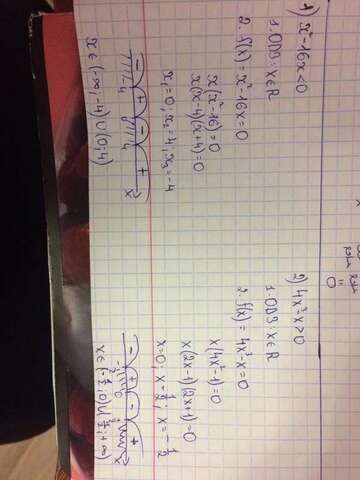 1) x³-16x<0
1. ОДЗ: x∈R
2. f(x) = x³-16x=0
x(x²-16)=0
x(x-4)(x+4)=0
x₁=0; x₂=4; x₃=-4
- + - +
-4 0 4 x
x∈(-∞;-4)∪(0;4)
2) 4x³-x>0
1. ОДЗ: x∈R
2. f(x) = 4x³-x=0
x(4x²-1)=0
x(2x-1)(2x+1)=0
x=0; x=½; x=-½
- + - +
-½ 0 ½ x
x∈(-½;0)∪(½;+∞)